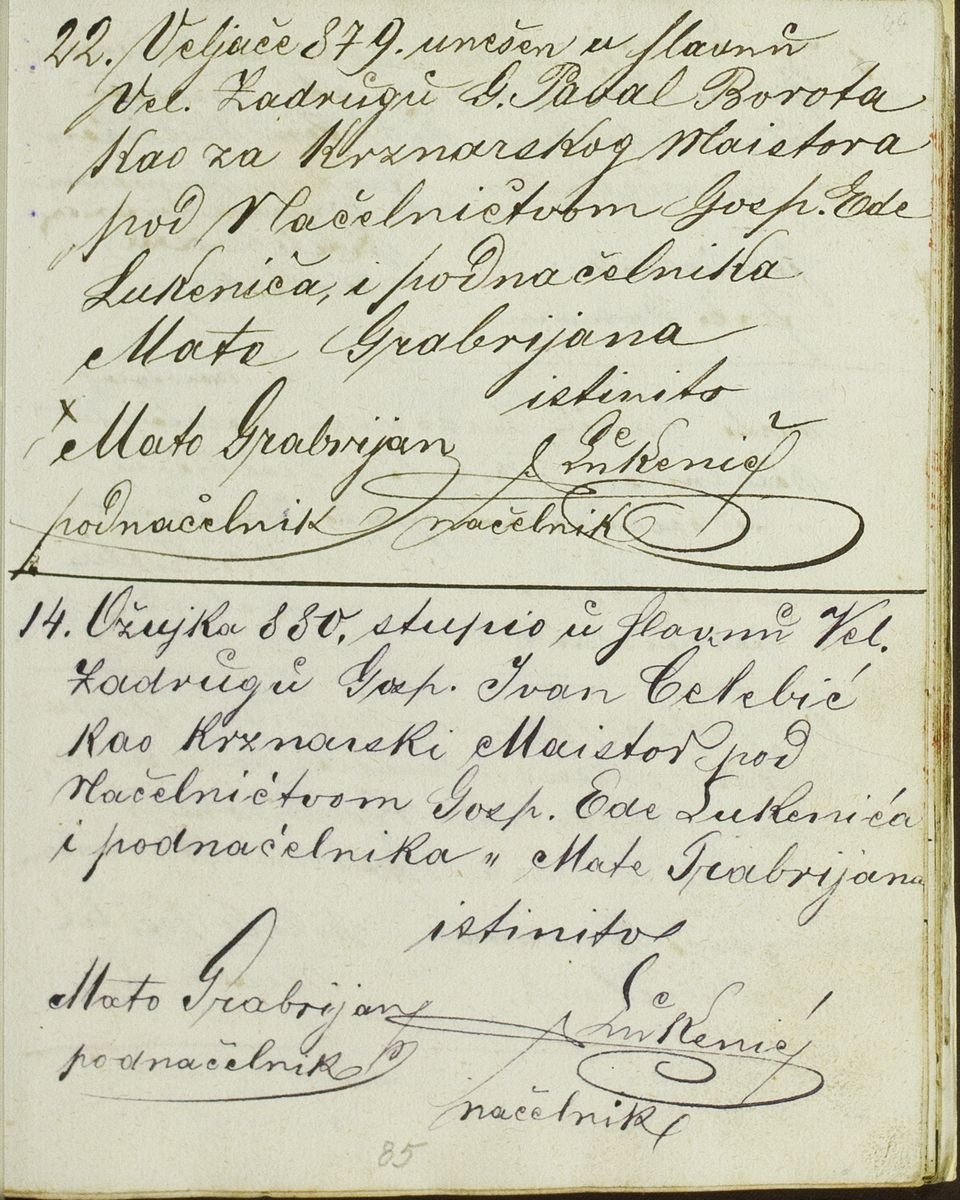 22. Veljače 879. unešen u slavnu
Vel. Zadrugu G. Paval Borota
Kao za Krznarskog Maistora
pod Načelničtvom Gosp. Ede
Lukeniča, i podnačelnika
Mate Grabrijana
istinito
x Mato Grabrijan Lukenič
podnačelnik načelnik
14. Ožujka 880. stupio u slavnu Vel.
Zadrugu Gosp. Ivan Celebić
kao Krznarski Maistor pod
Načelnićtvom Gosp. Ede Lukenića
i podnaćelnika „ Mate Grabrijana
istinito
Mato Grabrijan Lukenić
podnačelnik
načelnik
85